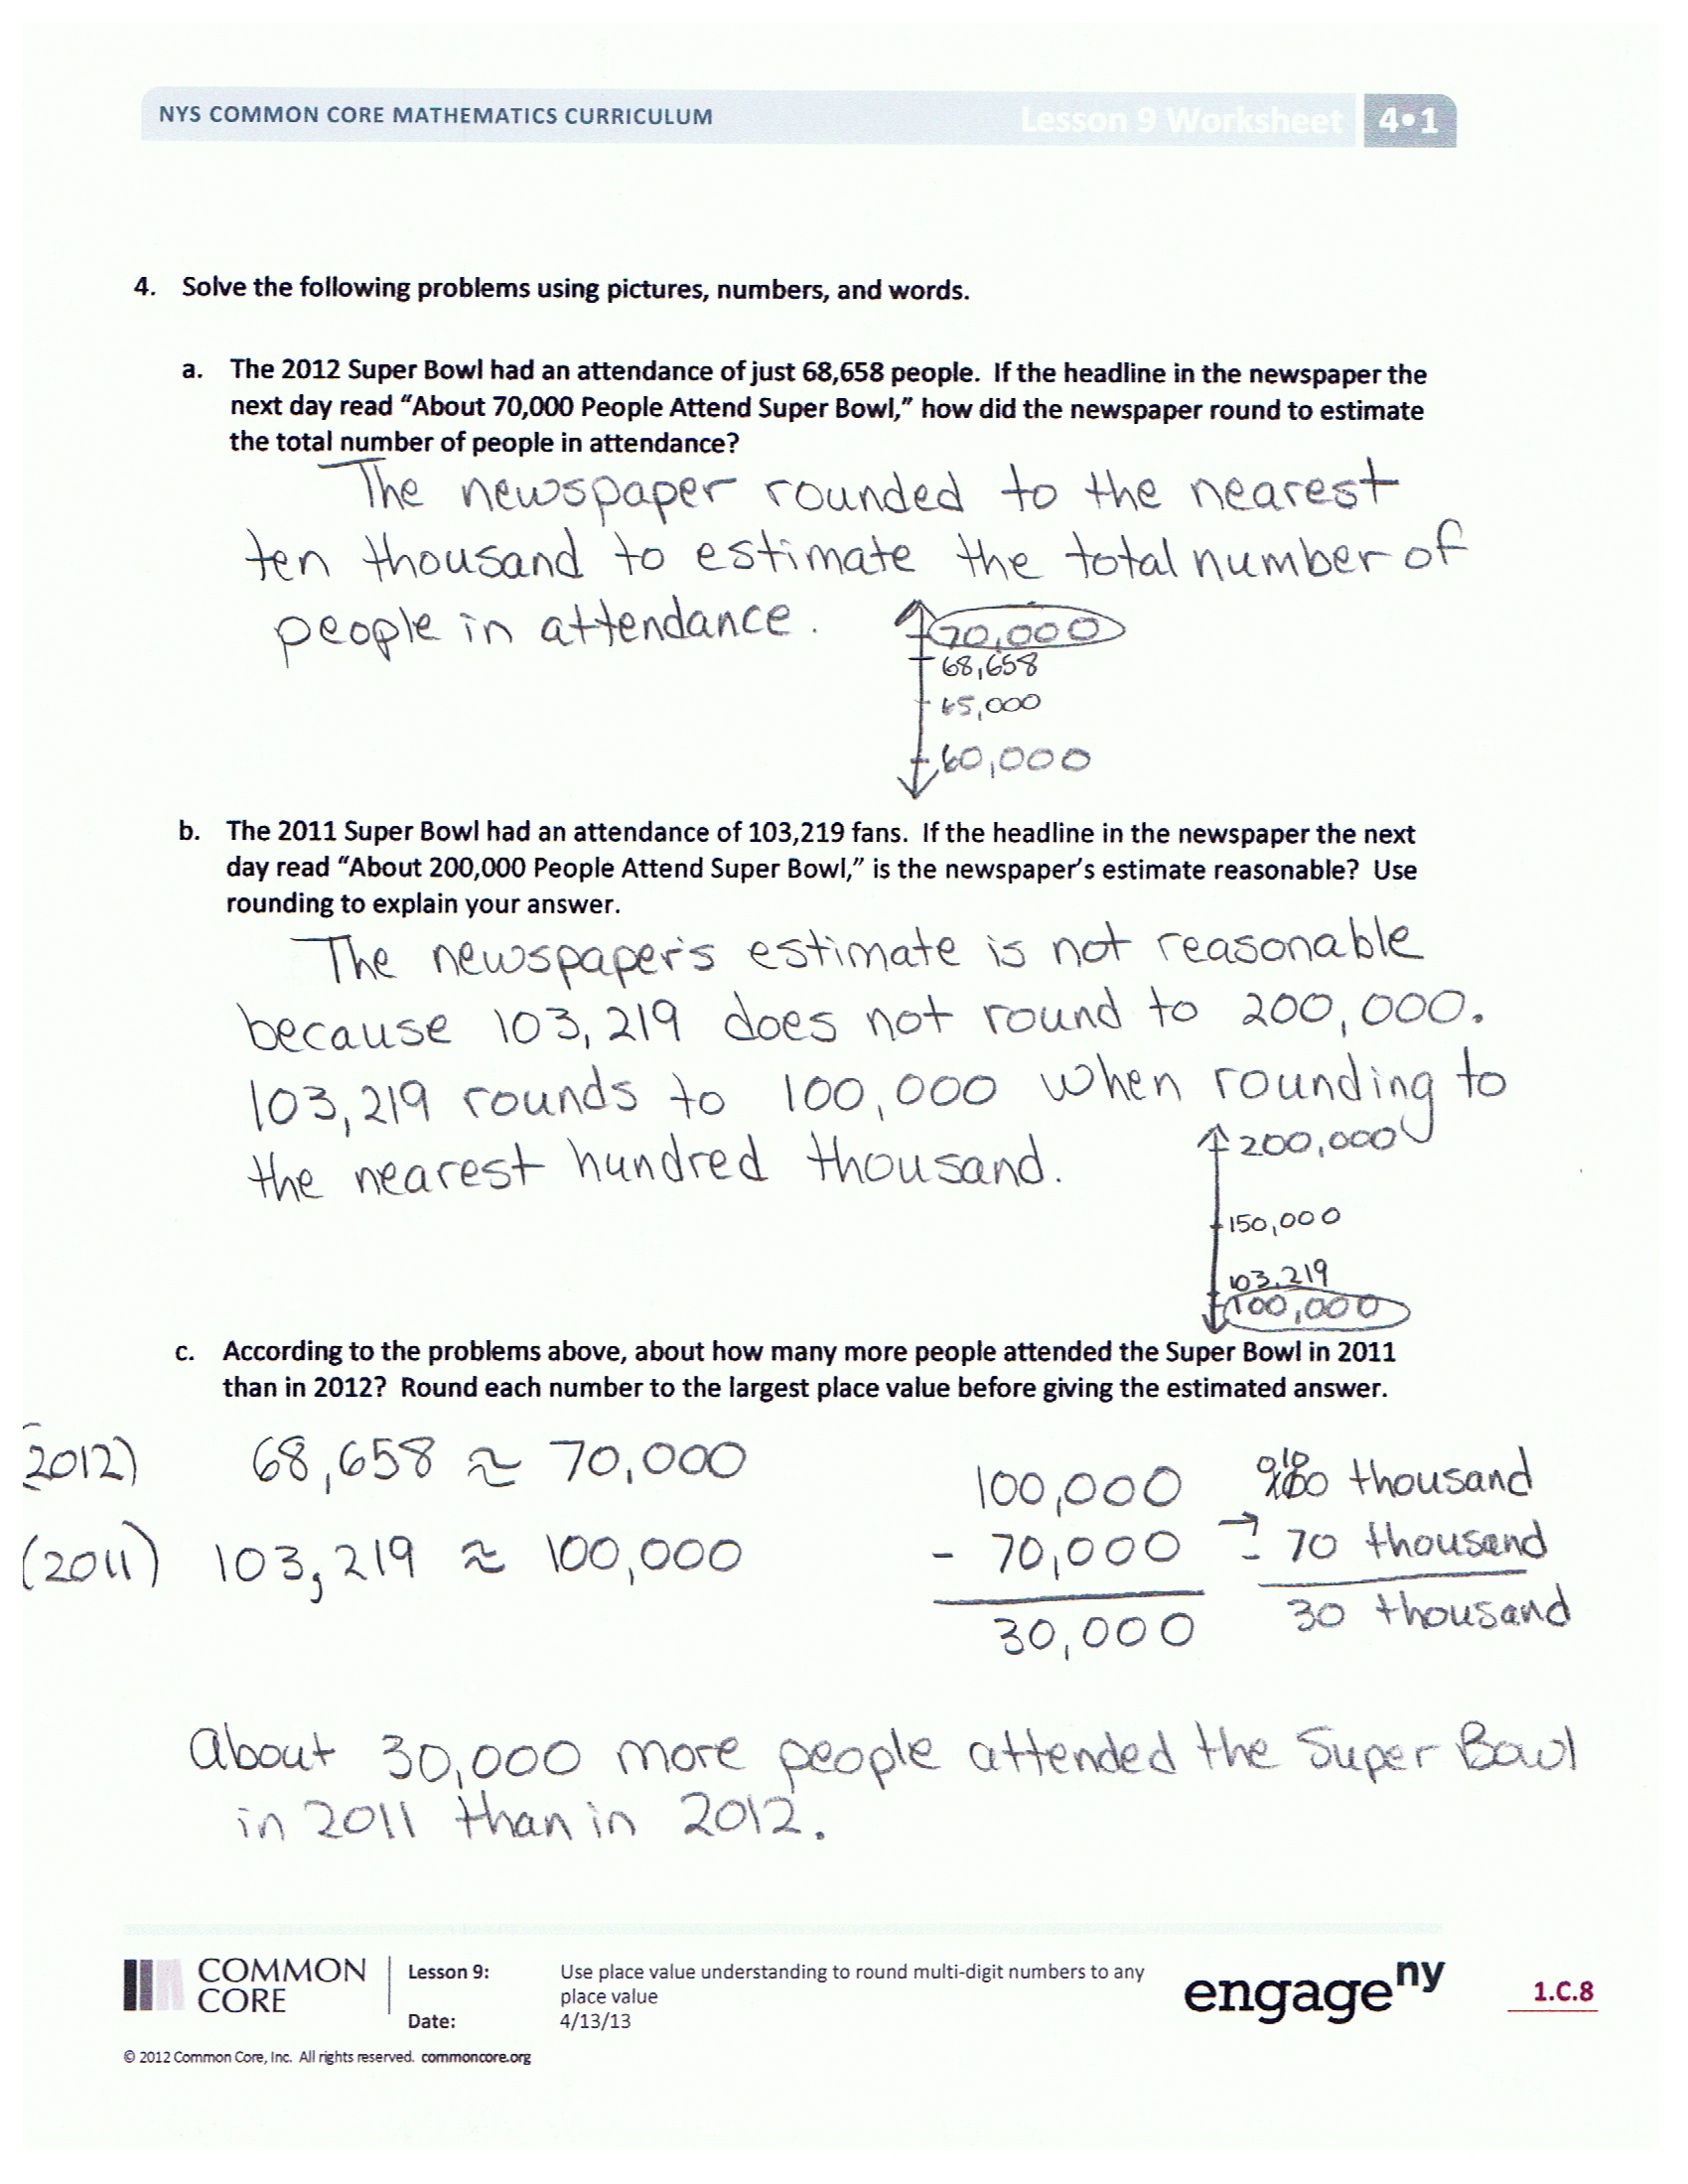 NYS COMMON CORE MATHEMATICS CURRICULUM
Lesson 9 Worksheet 4•1
4. Solve the following problems using pictures, numbers, and words.
a. The 2012 Super Bowl had an attendance of just 68,658 people. If the headline in the newspaper the
next day read “About 70,000 People Attend Super Bowl,” how did the newspaper round to estimate
the total number of people in attendance?
The newspaper rounded to the nearest
ten thousand to estimate the total number of
people in attendance.
70,000
68,658
65,000
60,000
b. The 2011 Super Bowl had an attendance of 103,219 fans. If the headline in the newspaper the next
day read “About 200,000 People Attend Super Bowl,” is the newspaper’s estimate reasonable? Use
rounding to explain your answer.
The newspaper's estimate is not reasonable
because 103,219 does not round to 200,000.
103,219 rounds to 100,000 when rounding to
the nearest hundred thousand.
200,000
150,000
103,219
100,000
c. According to the problems above, about how many more people attended the Super Bowl in 2011
than in 2012? Round each number to the largest place value before giving the estimated answer.
(2012) 68,658 ≈ 70,000
(2011) 103,219 ≈ 100,000
100,000
- 70,000
30,000
9 10
100 thousand
→ - 70 thousand
30 thousand
About 30,000 more people attended the Super Bowl
in 2011 than in 2012.
COMMON
CORE
Lesson 9: Use place value understanding to round multi-digit numbers to any
place value
Date: 4/13/13
engage ny
1.C.8
© 2012 Common Core, Inc. All rights reserved. commoncore.org